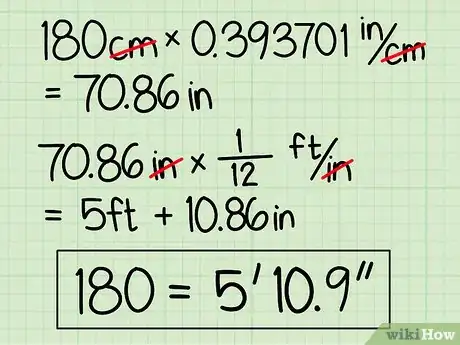 180cm × 0.393701 in/cm
= 70.86 in
70.86 in × 1/12 ft/in
= 5ft + 10.86in
180 = 5' 10.9"
wikiHow